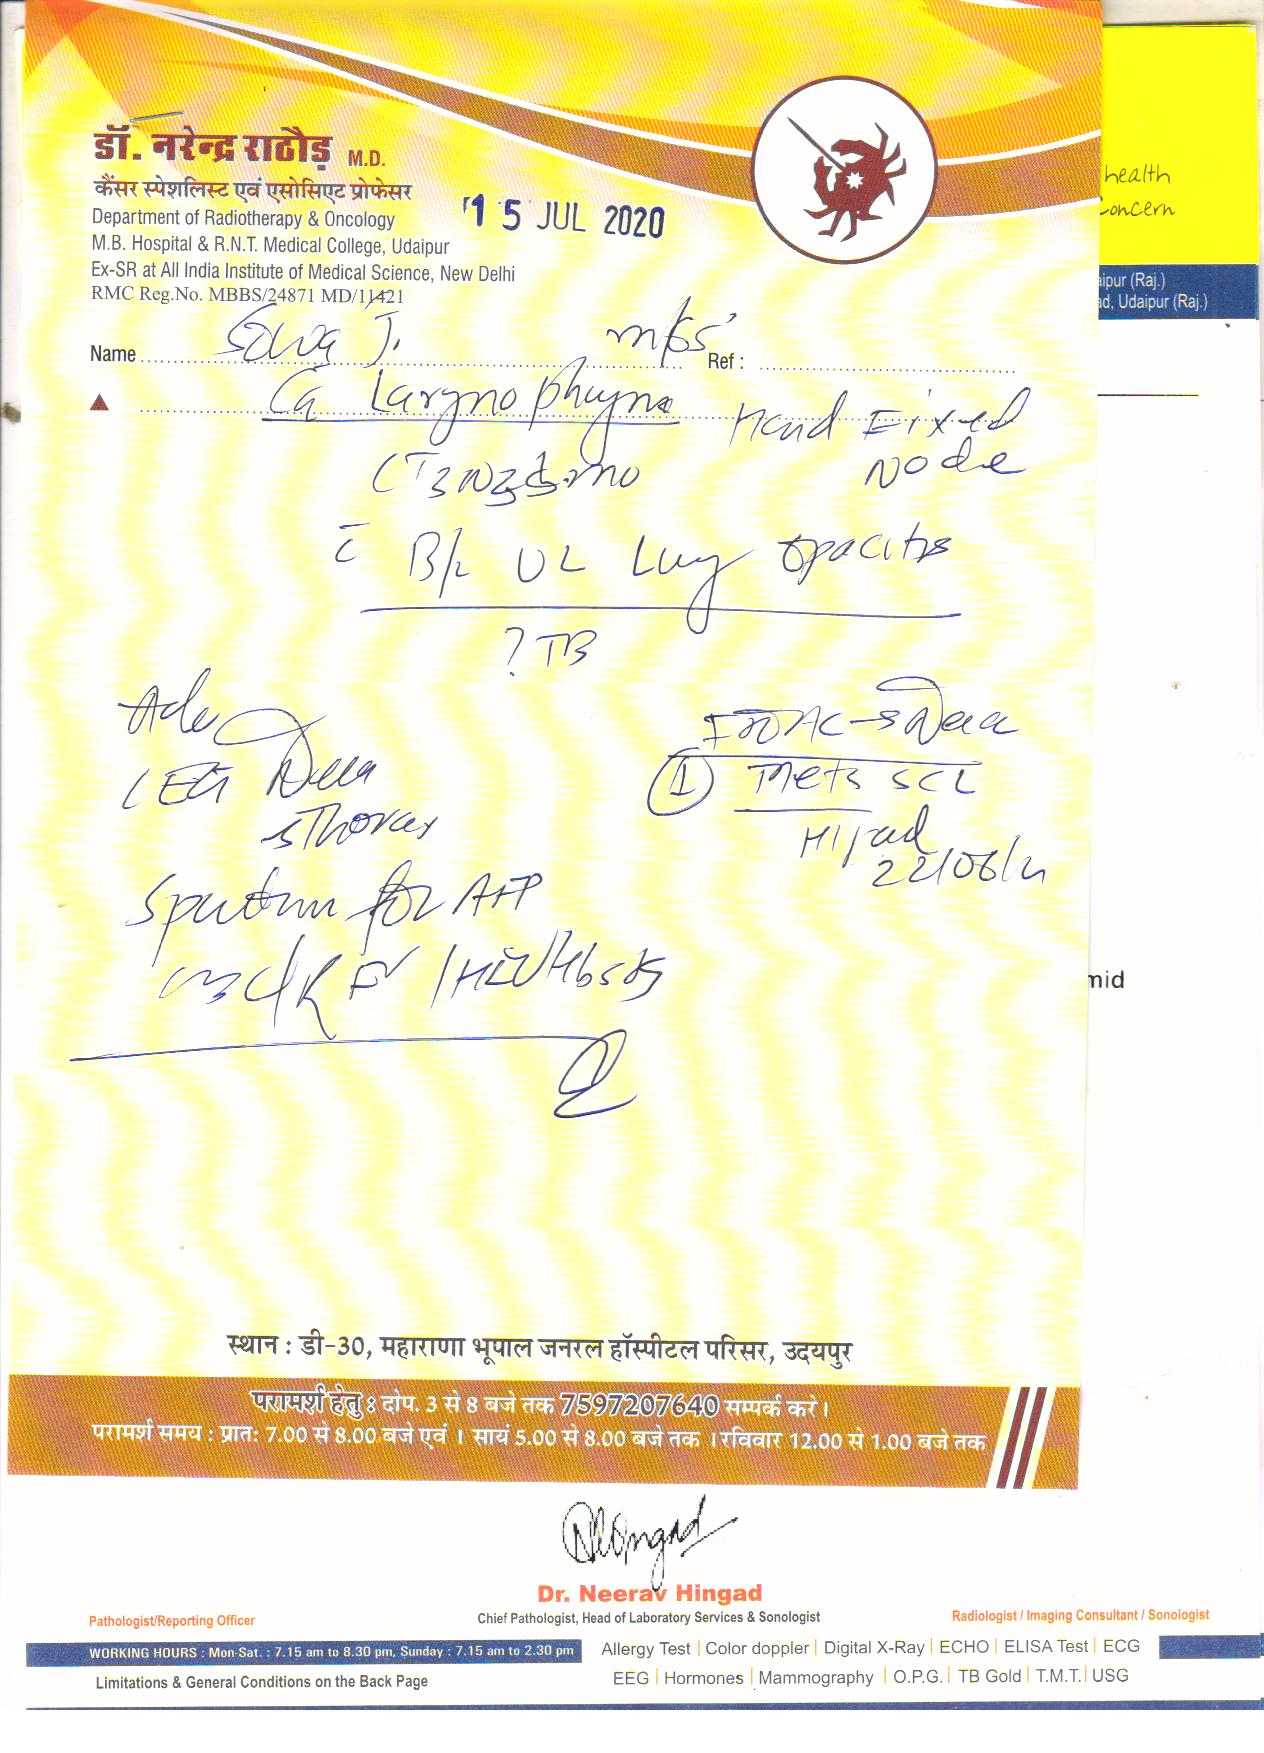 डॉ. नरेन्द्र राठौड़ M.D.
कैंसर स्पेशलिस्ट एवं एसोसिएट प्रोफेसर
Department of Radiotherapy & Oncology
M.B. Hospital & R.N.T. Medical College, Udaipur
Ex-SR at All India Institute of Medical Science, New Delhi
RMC Reg.No. MBBS/24871 MD/11421
15 JUL 2020
health
Concern
aipur (Raj.)
ad, Udaipur (Raj.)
Name
Ref :
Ca
Hard Fixed
Node
B/L UL Lung opacities
? TB
Adv
Mets SCL
Thorax
Hingad
Sputum for AFP
mid
स्थान : डी-30, महाराणा भूपाल जनरल हॉस्पीटल परिसर, उदयपुर
परामर्श हेतु : दोप. 3 से 8 बजे तक 7597207640 सम्पर्क करे ।
परामर्श समय : प्रातः 7.00 से 8.00 बजे एवं । सायं 5.00 से 8.00 बजे तक । रविवार 12.00 से 1.00 बजे तक
Dr. Neerav Hingad
Pathologist/Reporting Officer
Chief Pathologist, Head of Laboratory Services & Sonologist
Radiologist / Imaging Consultant / Sonologist
WORKING HOURS : Mon-Sat. : 7.15 am to 8.30 pm, Sunday : 7.15 am to 2.30 pm
Allergy Test | Color doppler | Digital X-Ray | ECHO | ELISA Test | ECG
Limitations & General Conditions on the Back Page
EEG | Hormones | Mammography | O.P.G. | TB Gold | T.M.T. | USG